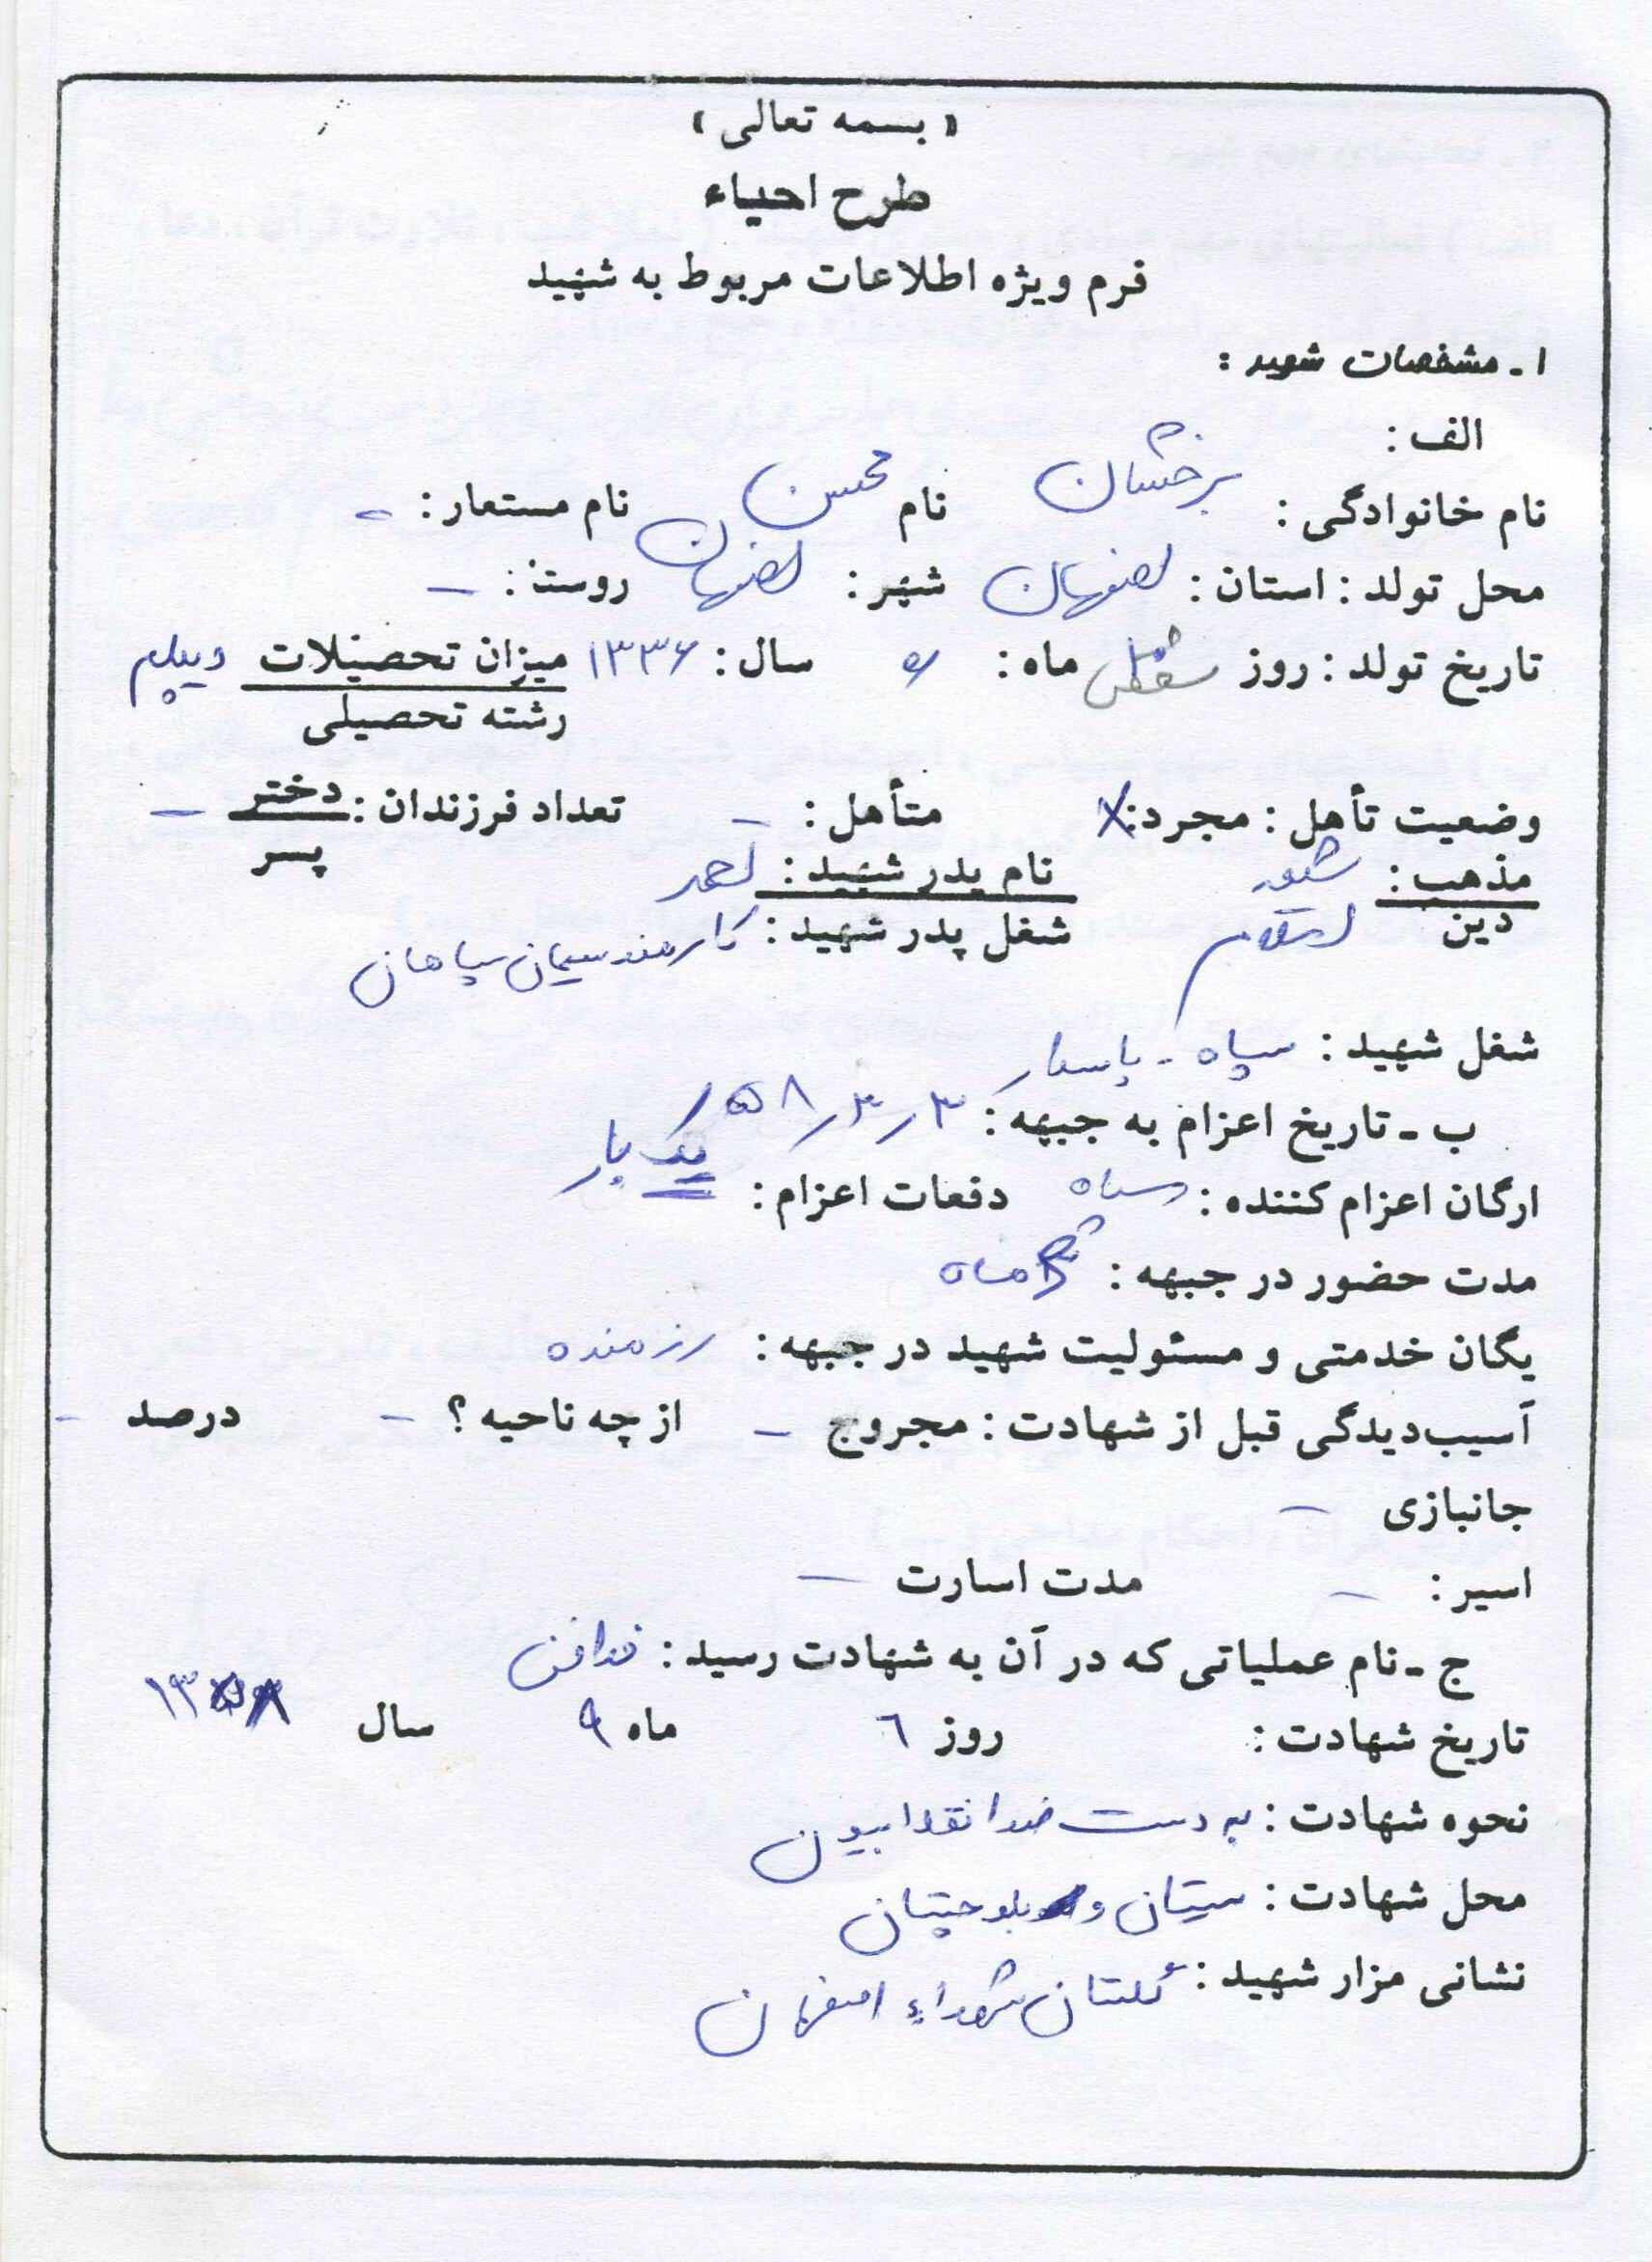 « بسمه تعالی »
طرح احیاء
فرم ویژه اطلاعات مربوط به شهید
۱ـ مشخصات شهید :
الف :
نام خانوادگی : نام محسن نام مستعار : -
محل تولد : استان : اصفهان شهر : اصفهان روستا : -
تاریخ تولد : روز ماه : سال : ۱۳۳۶ میزان تحصیلات دیپلم
رشته تحصیلی
وضعیت تأهل : مجرد : X متأهل : - تعداد فرزندان : دختر -
پسر
مذهب : شیعه نام پدر شهید : احمد
دین اسلام شغل پدر شهید : کارمند سیمان سپاهان
شغل شهید : سپاه - پاسدار
ب ـ تاریخ اعزام به جبهه : ۳/۳/۵۸
ارگان اعزام کننده : سپاه دفعات اعزام : یک بار
مدت حضور در جبهه : ماه
یگان خدمتی و مسئولیت شهید در جبهه : رزمنده
آسیب‌دیدگی قبل از شهادت : مجروح - از چه ناحیه ؟ - درصد -
جانبازی -
اسیر : - مدت اسارت -
ج ـ نام عملیاتی که در آن به شهادت رسید :
تاریخ شهادت : روز ٦ ماه ۹ سال ۱۳۵۸
نحوه شهادت : به دست ضد انقلابیون
محل شهادت : سیستان و بلوچستان
نشانی مزار شهید : گلستان شهداء اصفهان